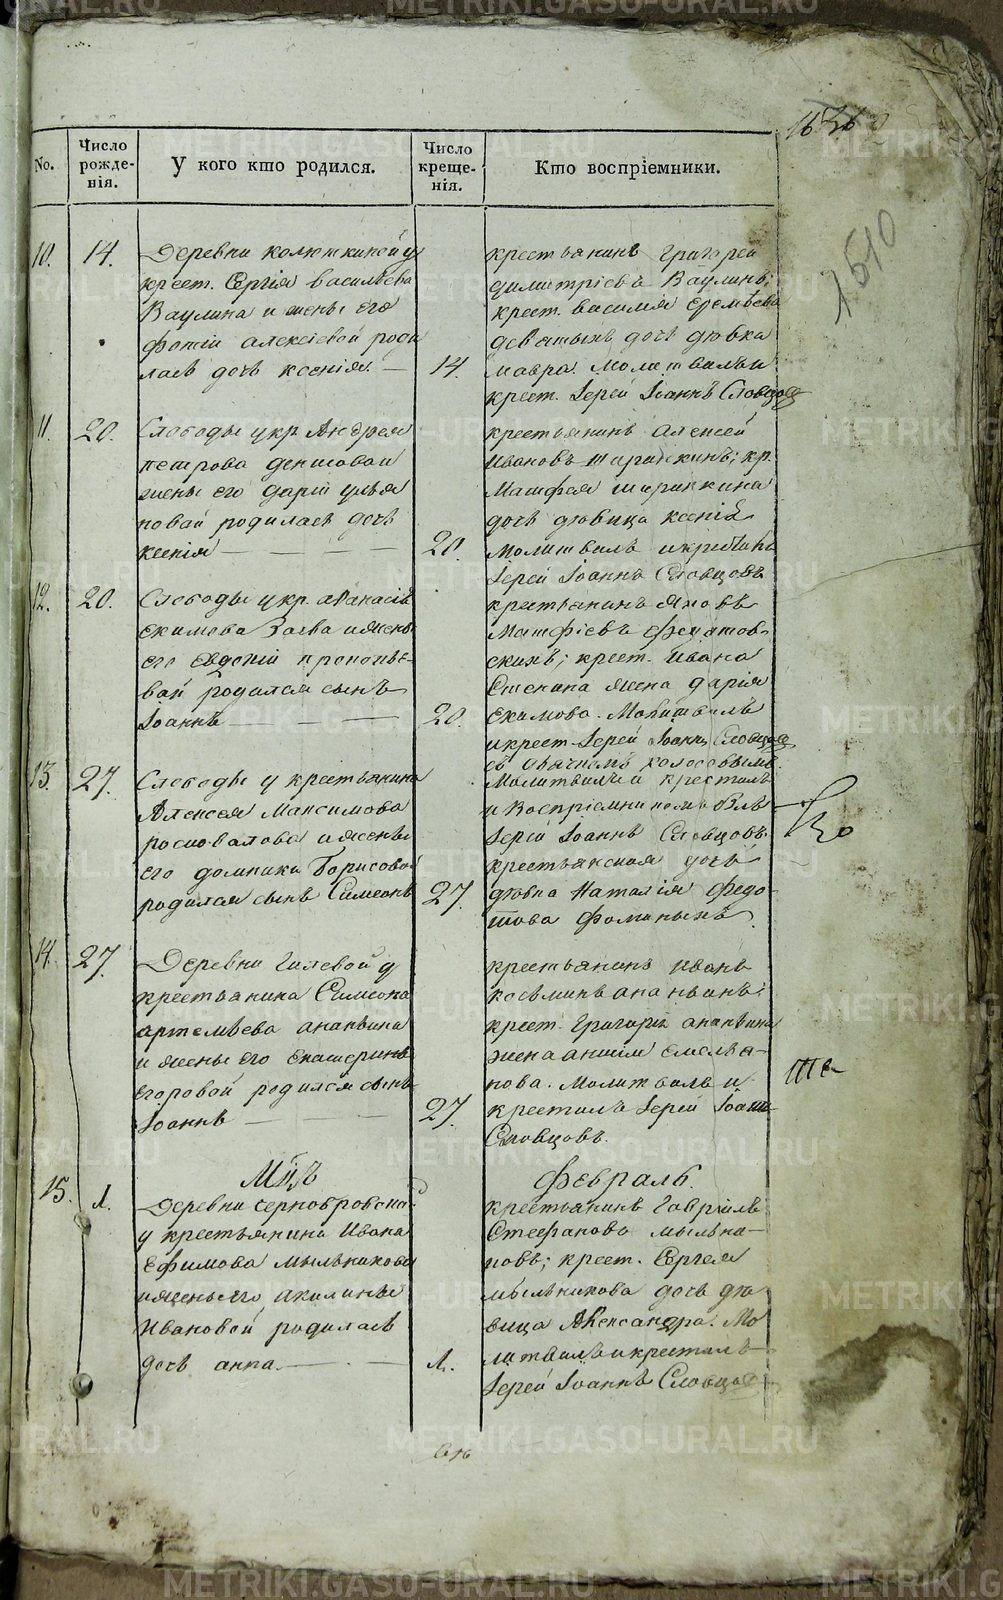 No.
Число рожденія.
У кого кто родился.
Число крещенія.
Кто воспріемники.
1510
10.
14.
Деревни Калюткиной у
крест. Сергія Васильева
Ваулина и жены его
Фотіи Алексіевой роди
лась дочь Ксенія.
14.
крестьянинъ Григорей
Димитріевъ Ваулинъ;
крест. Василія Еремѣева
Девятыхъ дочь дѣвка
Мавра. Молитвилъ и
крест. Іерей Іоаннъ Словцовъ
11.
20.
Слободы у кр. Андрея
Петрова Денисова и
жены его Дарьи Улья
новой родилась дочь
Ксенія
20.
крестьянинъ Алексей
Ивановъ кр.
Матфея
дочь дѣвица Ксенія
Молитвилъ и крестилъ
Іерей Іоаннъ Словцовъ
12.
20.
Слободы у кр. Афанасія
Екимова Заева и жены
его Евдокіи Прокопье-
вой родился сынъ
Іоаннъ
20.
крестьянинъ Яковъ
Матфіевъ Федотов-
скихъ; крест. Ивана
Стенина жена Дарія
Екимова. Молитвилъ
и крест. Іерей Іоаннъ Словцовъ
13.
27.
Слободы у крестьянина
Алексея Максимова
и жены
его Домники Борисовой
родился сынъ Симеонъ
27.
Молитвилъ и крестилъ
и Воспріемникомъ былъ
Іерей Іоаннъ Словцовъ
крестьянская дочь
дѣвка Наталія Федо-
това Фоминыхъ.
14.
27.
Деревни Гилевой у
крестьянина Симеона
Артемьева Ананьина
и жены его Екатерины
Егоровой родился сынъ
Іоаннъ
27.
крестьянинъ Иванъ
Косьминъ Ананьинъ;
крест. Григорія Ананьина
жена Емелья-
нова. Молитвилъ и
крестилъ Іерей Іоаннъ
Словцовъ.
Мцъ
Февраль.
15.
1.
Деревни Чернобровской
у крестьянина Ивана
Ефимова Мыльникова
и жены его Акилины
Ивановой родилась
дочь Анна.
1.
крестьянинъ Гавріилъ
Стефановъ Мыльни-
ковъ; крест. Сергея
Мыльникова дочь дѣ
вица Александра. Мо
литвилъ и крестилъ
Іерей Іоаннъ Словцовъ
METRIKI.GASO-URAL.RU